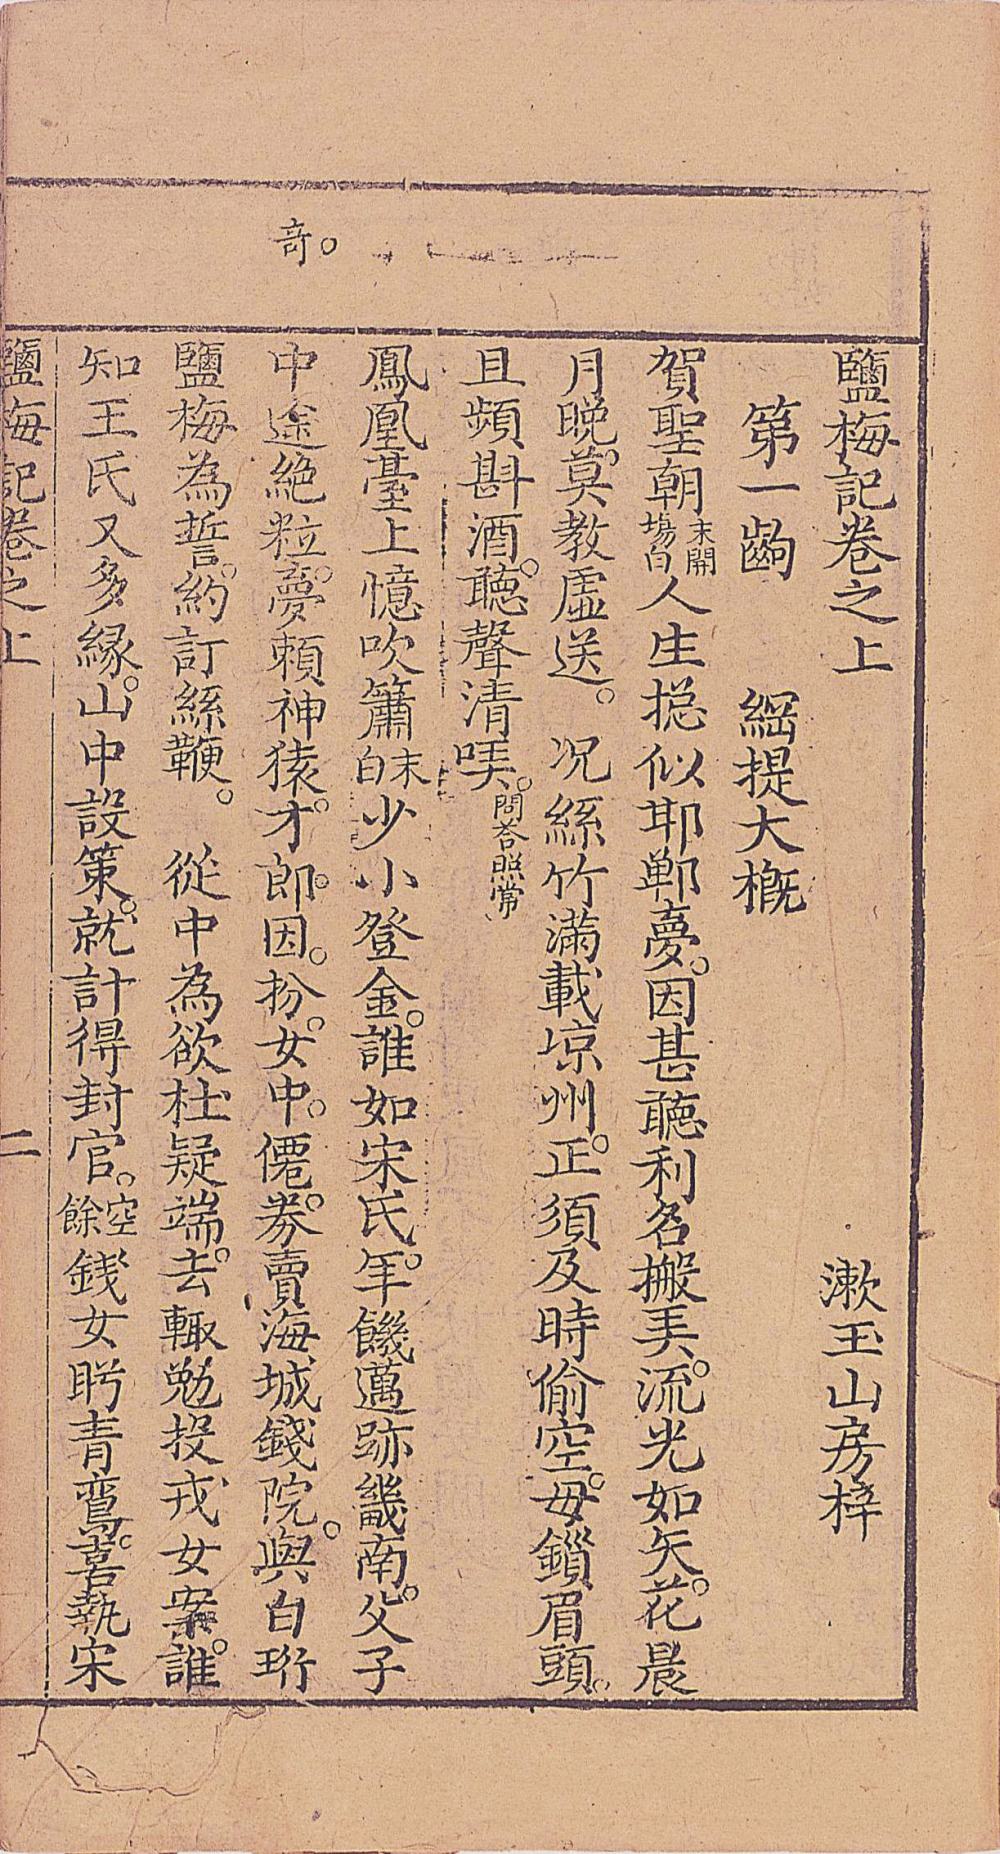 奇。
鹽梅記卷之上　漱玉山房梓
第一齣　綱提大概
賀聖朝末開場白人生揔似耶鄲夢。因甚聽利名搬美。流光如矢。花晨
月晚。莫教虛送。　况絲竹滿載凉州。正須及時偷空。毋鎻眉頭。
且頻斟酒。聽聲清唭。問荅照常
鳳凰臺上憶吹簫末白少小登金。誰如宋氏。年饑邁跡畿南。父子
中途絶粒。夢賴神猿。才郎。因。扮。女中。僊。券賣海城錢院。與白珩
鹽梅為誓。約訂絲鞭。　從中為欲杜疑端。去輙勉投戎女案。誰
知王氏又多緣。山中設策。就計得封官。空餘錢女盻青鸞。喜執宋
鹽梅記卷之上　二